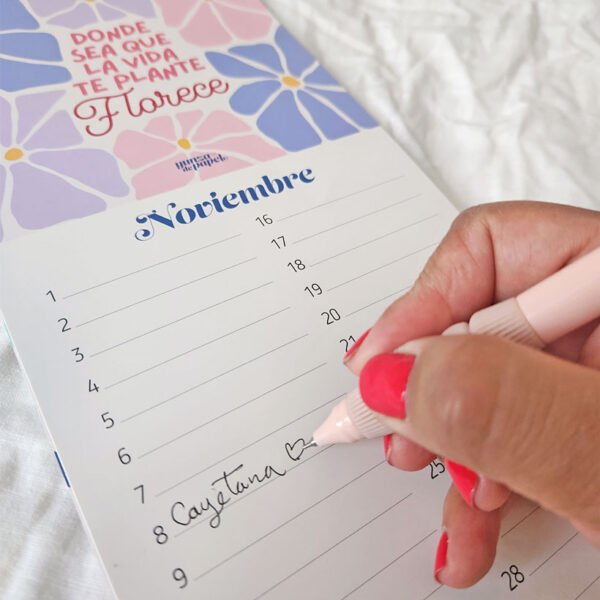 DONDE
SEA QUE
LA VIDA
TE PLANTE
Florece
yunsa
de papel
Noviembre
1
2
3
4
5
6
7
8 Cayetana
9
16
17
18
19
20
21
25
28